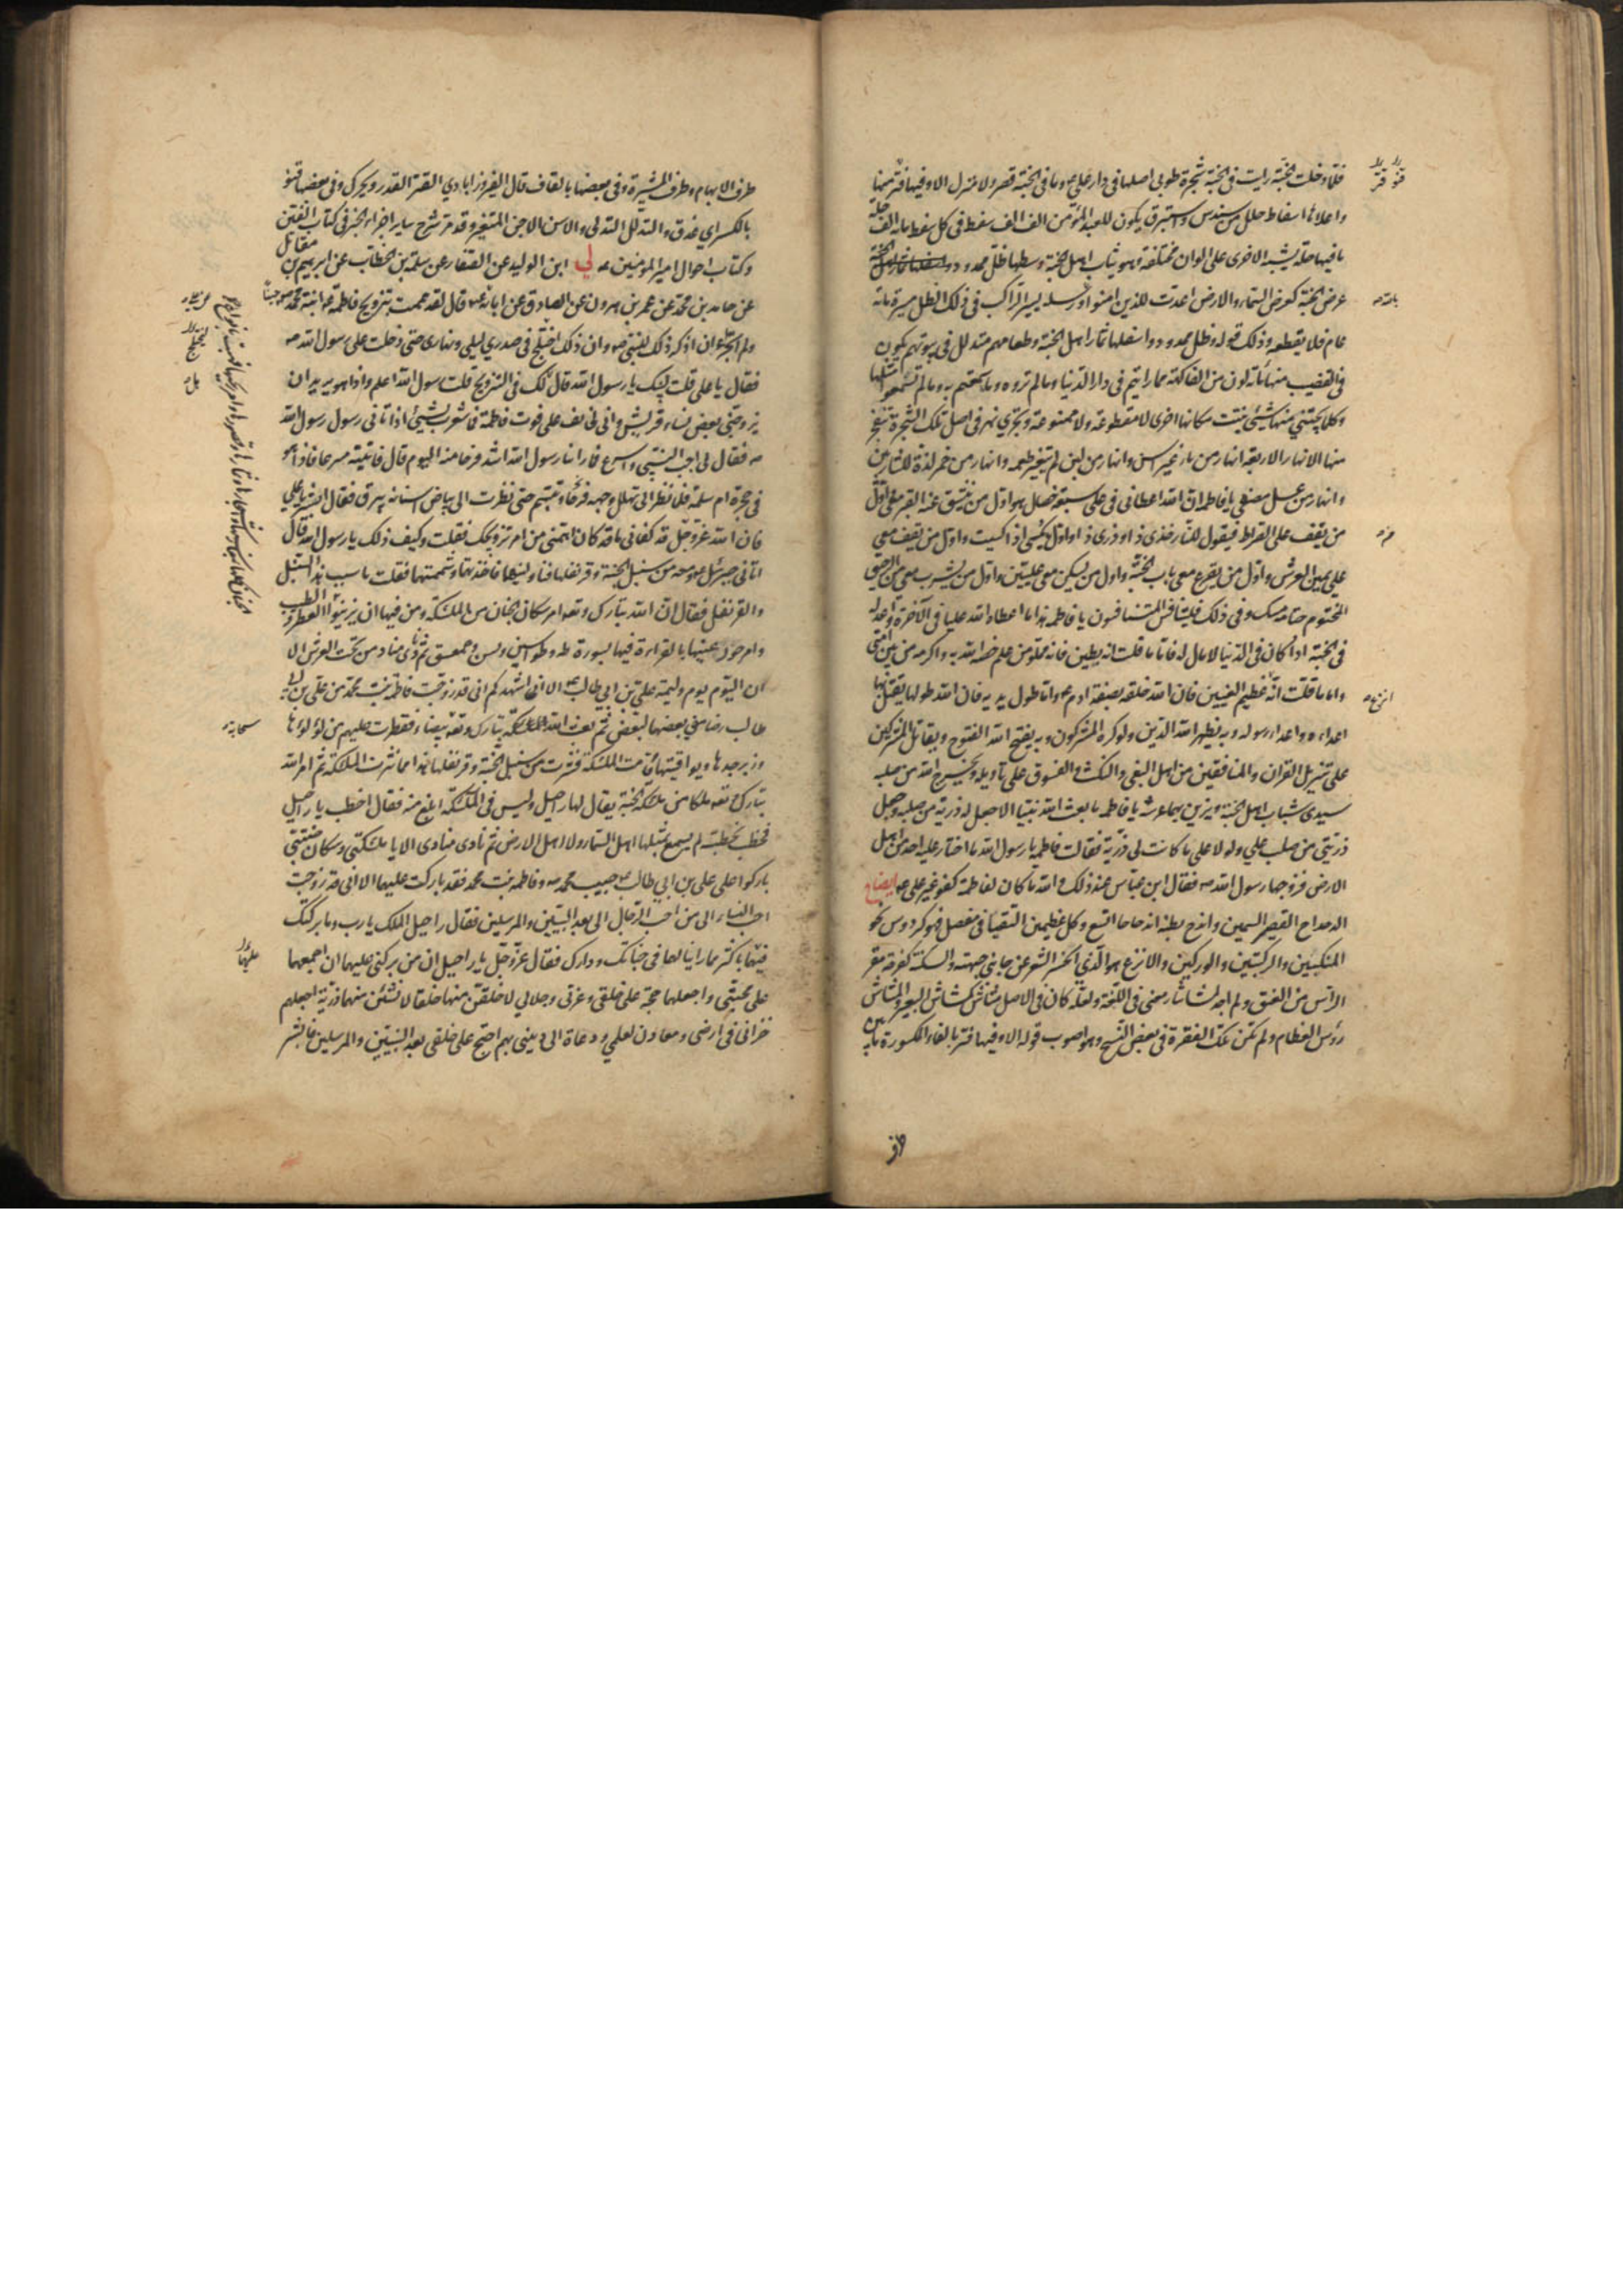 فلما دخلت الجنة رايت في الجنة شجرة طوبى اصلها في دار علي ع وما في الجنة قصر ولا منزل الا وفيها فتر منها
واعلاها اسفاط حلل من سندس واستبرق يكون للعبد المؤمن الف الف سفط في كل سفط مائة الف حلة
ما فيها حلة يشبه الاخرى على الوان مختلفة وهو ثياب اهل الجنة وسطها ظل ممدود
عرض الجنة كعرض السماء والارض اعدت للذين امنوا ورسله يسير الراكب في ذلك الظل مسيرة مائة
عام فلا يقطعه وذلك قوله وظل ممدود واسفلها ثمار اهل الجنة وطعامهم متدلل في بيوتهم يكون
في القضيب منها مائة لون من الفاكهة مما رايتم في دار الدنيا ومما لم تروه وما سمعتم به وما لم تسمعوا مثلها
وكلما يجتنى منها شيء نبتت مكانها اخرى لا مقطوعة ولا ممنوعة وتجري نهر في اصل تلك الشجرة تنفجر
منها الانهار الاربعة انهار من ماء غير اسن وانهار من لبن لم يتغير طعمه وانهار من خمر لذة للشاربين
وانهار من عسل مصفى يا فاطمة ان الله اعطاني في علي سبع خصال هو اول من ينشق عنه القبر معي واول
من يقف على الصراط فيقول للنار خذي ذا وذري ذا واول من يكسى اذا كسيت واول من يقف معي
على يمين العرش واول من يقرع معي باب الجنة واول من يسكن معي عليين واول من يشرب معي من الرحيق
المختوم ختامه مسك وفي ذلك فليتنافس المتنافسون يا فاطمة هذا ما اعطاه الله عليا في الاخرة واعد له
في الجنة اذا كان في الدنيا لا مال له فاما ما قلت انه بطين فانه مملو من علم خصه الله به واكرمه من بين امتي
واما ما قلت انه عظيم العينين فان الله خلقه بصفة ادم ع واما طول يديه فان الله طولها ليقتل بها
اعداءه واعداء رسوله وبه يظهر الله الدين ولو كره المشركون وبه يفتح الله الفتوح ويقاتل المشركين
على تنزيل القران والمنافقين من اهل البغي والنكث والفسوق على تاويله ويخرج الله من صلبه
سيدي شباب اهل الجنة ويزين بهما عرشه يا فاطمة ما بعث الله نبيا الا جعل له ذرية من صلبه وجعل
ذريتي من صلب علي ولولا علي ما كانت لي ذرية فقالت فاطمة يا رسول الله ما اختار عليه احدا من اهل
الارض فزوجها رسول الله ص فقال ابن عباس عند ذلك والله ما كان لفاطمة كفو غير علي ع ايضاح
الدحداح القصير السمين واندح بطنه اندحاحا اتسع وكل عظيمين التقيا في مفصل فهو كردوس نحو
المنكبين والركبتين والوركين والانزع هو الذي انحسر الشعر عن جانبي جبهته والسكنة كفرحة مقر
الراس من العنق ولم اجد لمشاشار معنى في اللغة ولعله كان في الاصل مشاش كمشاش البعير والمشاش
رؤس العظام ولم تكن تلك الفقرة في بعض النسخ وهو اصوب قوله الا وفيها فتر بالفاء المكسورة ما بين
طرف
طرف الابهام وطرف المشيرة وفي بعضها بالقاف قال الفيروزابادي القتر القدر ويحرك وفي بعضها قنو
بالكسر اي عذق والتدلل التدلي والاسن الاجن المتغير وقد مر شرح ساير اجزاء الخبر في كتاب الفتن
وكتاب احوال امير المؤمنين ع لي ابن الوليد عن الصفار عن سلمة بن الخطاب عن ابرهيم بن مقاتل
عن حامد بن محمد عن عمر بن هرون عن الصادق عن ابائه ع قال لقد هممت بتزويج فاطمة ابنة محمد ص حينا
ولم اتجرء ان اذكر ذلك للنبي ص وان ذلك اختلج في صدري ليلي ونهاري حتى دخلت على رسول الله ص
فقال يا علي قلت لبيك يا رسول الله قال هل لك في التزويج قلت رسول الله اعلم واذا هو يريد ان
يزوجني بعض نساء قريش واني لخائف على فوت فاطمة فما شعرت بشيء اذ اتاني رسول رسول الله
ص فقال لي اجب النبي واسرع فما راينا رسول الله اشد فرحا منه اليوم قال فاتيته مسرعا فاذا هو
في حجرة ام سلمة فلما نظر الي تهلل وجهه فرحا وتبسم حتى نظرت الى بياض اسنانه يبرق فقال ابشر يا علي
فان الله عز وجل قد كفاني ما قد كان اهمني من امر تزويجك فقلت وكيف ذلك يا رسول الله قال
اتاني جبرئيل ومعه من سنبل الجنة وقرنفلها فناولنيهما فاخذتهما وشممتهما فقلت ما سبب هذا السنبل
والقرنفل فقال ان الله تبارك وتعالى امر سكان الجنان من الملئكة ومن فيها ان يزينوا
وامر حور عينها بالقراءة فيها بسورة طه وطواسين ويس وحمعسق ثم نادى مناد من تحت العرش الا
ان اليوم يوم وليمة علي بن ابي طالب ع الا اني اشهدكم اني قد زوجت فاطمة بنت محمد من علي بن ابي
طالب رضا مني بعضهما لبعض ثم بعث الله تبارك وتعالى بيضاء فقطرت عليهم من لؤلؤها
وزبرجدها ويواقيتها وقامت الملئكة فنثرت من سنبل الجنة وقرنفلها هذا مما نثرت الملئكة ثم امر الله
تبارك وتعالى ملكا من ملئكة الجنة يقال لها راحيل وليس في الملئكة ابلغ منه فقال اخطب يا راحيل
فخطب بخطبة لم يسمع بمثلها اهل السماء ولا اهل الارض ثم نادى منادي الا يا ملئكتي وسكان جنتي
باركوا على علي بن ابي طالب ع حبيب محمد ص وفاطمة بنت محمد فقد باركت عليهما الا اني قد زوجت
احب النساء الي من احب الرجال الي بعد النبيين والمرسلين فقال راحيل الملك يا رب وما بركتك
فيهما باكثر مما راينا لهما في جنانك ودارك فقال عز وجل يا راحيل ان من بركتي عليهما ان اجمعهما
على محبتي واجعلهما حجة على خلقي وعزتي وجلالي لاخلقن منهما خلقا ولانشئن منهما ذرية اجعلهم
خزاني في ارضي ومعادن لعلمي ودعاة الى ديني بهم احتج على خلقي بعد النبيين والمرسلين فابشر